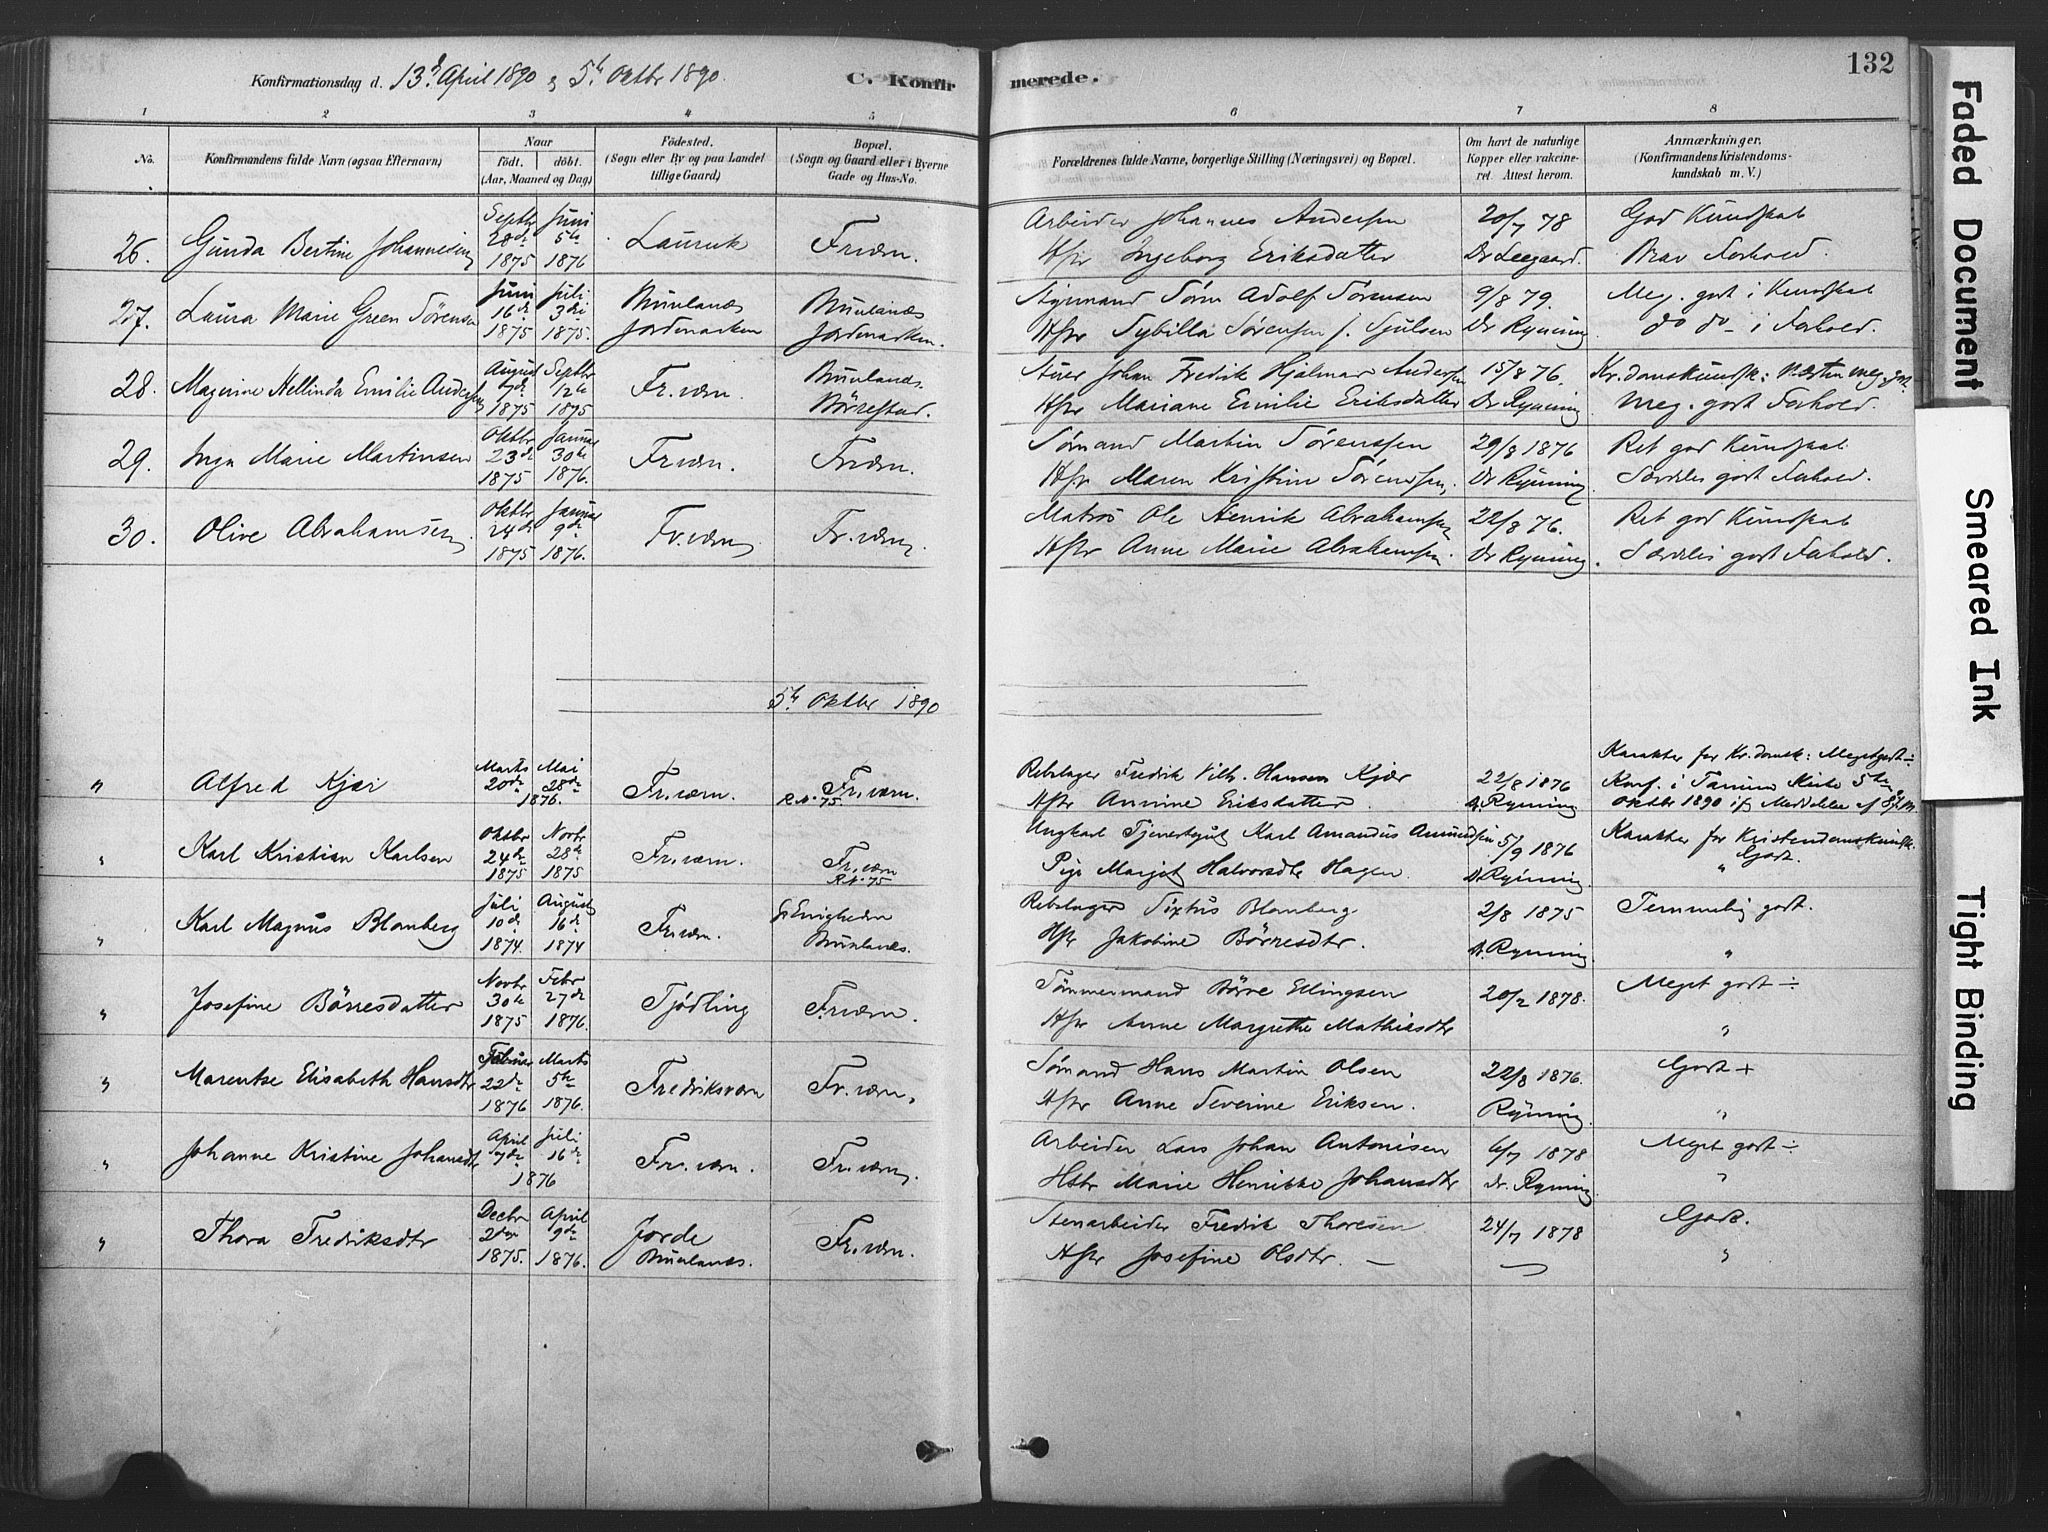 Konfirmationsdag d. 13d April 1890 & 5te Oktbr 1890. C. Konfirmerede. 132
1 2 3 4 5 6 7 8
No. Konfirmandens fulde Navn (ogsaa Efternavn) Naar födt. döbt. (Aar, Maaned og Dag) Födested. (Sogn eller By og paa Landet tillige Gaard) Bopæl. (Sogn og Gaard eller i Byerne Gade og Hus-No. Forældrenes fulde Navne, borgerlige Stilling (Næringsvei) og Bopæl. Om havt de naturlige Kopper eller vakcineret. Attest herom. Anmærkninger. (Konfirmandens Kristendomskundskab m. V.)
26. Gunda Bertine Johannesen Septbr 28de 1875 Juni 5te 1876 Laurvik Fr.værn. Arbeider Johannes Andersen 20/7 78 God Kundskab
Hstr Ingeborg Eriksdatter Dr Seegaard. Brav Forhold.
27. Laura Marie Green Sörensen Juni 16de 1875 Juli 3die 1875. Brunlanæs Jordemarken Brunlanæs Jordemarken. Styrmand Sørn Adolf Sørensen 9/8 79. Meg. godt i Kundskab
Hstr Sybilla Sørensen f. Gjulsen Dr Rynning do do i Forhold.
28. Magrine Hellinda Emilie Andersen August 7de 1875 Septbr 12te 1875 Fr.værn. Brunlanæs. Börrestad. Stuer Johan Fredrik Hjalmar Andersen 15/8 76. Kr.domskundsk: Næsten meg. godt.
Hstr Mariane Emilie Eriksdatter Dr Rynning Meg. godt Forhold.
29. Inga Marie Martinsen Oktbr 23de 1875 Januar 30te 1876. Fr.værn. Fr.værn. Sömand Martin Sörenssen 29/8 1876 Ret god Kundskab
Hstr Maren Kristine Sörendsen, Dr Rynning. Særdeles godt Forhold.
30. Olive Abrahamsen Oktbr 24de 1875 Januar 9de 1876. Fr.værn Fr.værn. Matros Ole Henrik Abrahamsen 22/8 76. Ret god Kundskab
Hstr Anne Marie Abrahamsen. Dr Rynning. Særdeles godt Forhold.
5te Oktbr 1890
" Alfred Kjær Marts 20de Mai 28de 1876. Fr.værn. Fr.værn. R.N. 75 Rebslager Fredrik Vilh. Hansen Kjær 22/8 1876 Karakter for Kr.domsk: Megetgodt ÷
Hstr Annine Eriksdatter. Dr. Rynning Konf. i Tanum Kirke 5te Oktbr 1890
" Karl Kristian Karlsen Oktbr 24de 1875 Novbr 28de 1875 Fr.værn. Fr.værn R.N. 75 Ungkarl Tjenestegut Karl Amandus Amundsen 5/9 1876 Karakter for Kristendomskundsk.
Pige Margit Halvorsdtr Hagen. Dr. Rynning " Godt.
" Karl Magnus Blomberg Juli 10de 1874. August 16de 1874 Fr.værn. Enigheden Brunlanæs. Rebslager Sixtus Blomberg 2/8 1875 Temmelig godt.
Hstr Jakobine Börresdtr. Dr. Rynning. "
" Josefine Börresdatter Novbr 30te 1875 Febr 27de 1876. Tjödling Fr.værn. Tömmermand Börre Ellingsen 20/2 1878. Meget godt ÷
Hstr Anne Margrethe Mathiasdtr "
" Marentse Elisabeth Hansdtr Februar 22de 1876 Marts 5te 1876. Fredriksværn Fr.værn. Sömand Hans Martin Olsen 22/8 1876. Godt +
Hstr Anne Severine Eriksen. Rynning "
" Johanne Kristine Johansdtr April 7de Juli 16de 1876 Fr.værn. Fr.værn. Arbeider Lars Johan Antonisen 6/7 1878 Meget godt ÷
Hstr Marie Henrikke Johansdtr Dr. Rynning "
" Thora Fredriksdtr Decbr 2den 1875. April 9de 1876. Jorde Brunlanæs. Fr.værn. Stenarbeider Fredrik Thoresen 24/7 1878 Godt.
Hstr Josefine Olsdtr. — "
Faded Document
Smeared Ink
Tight Binding